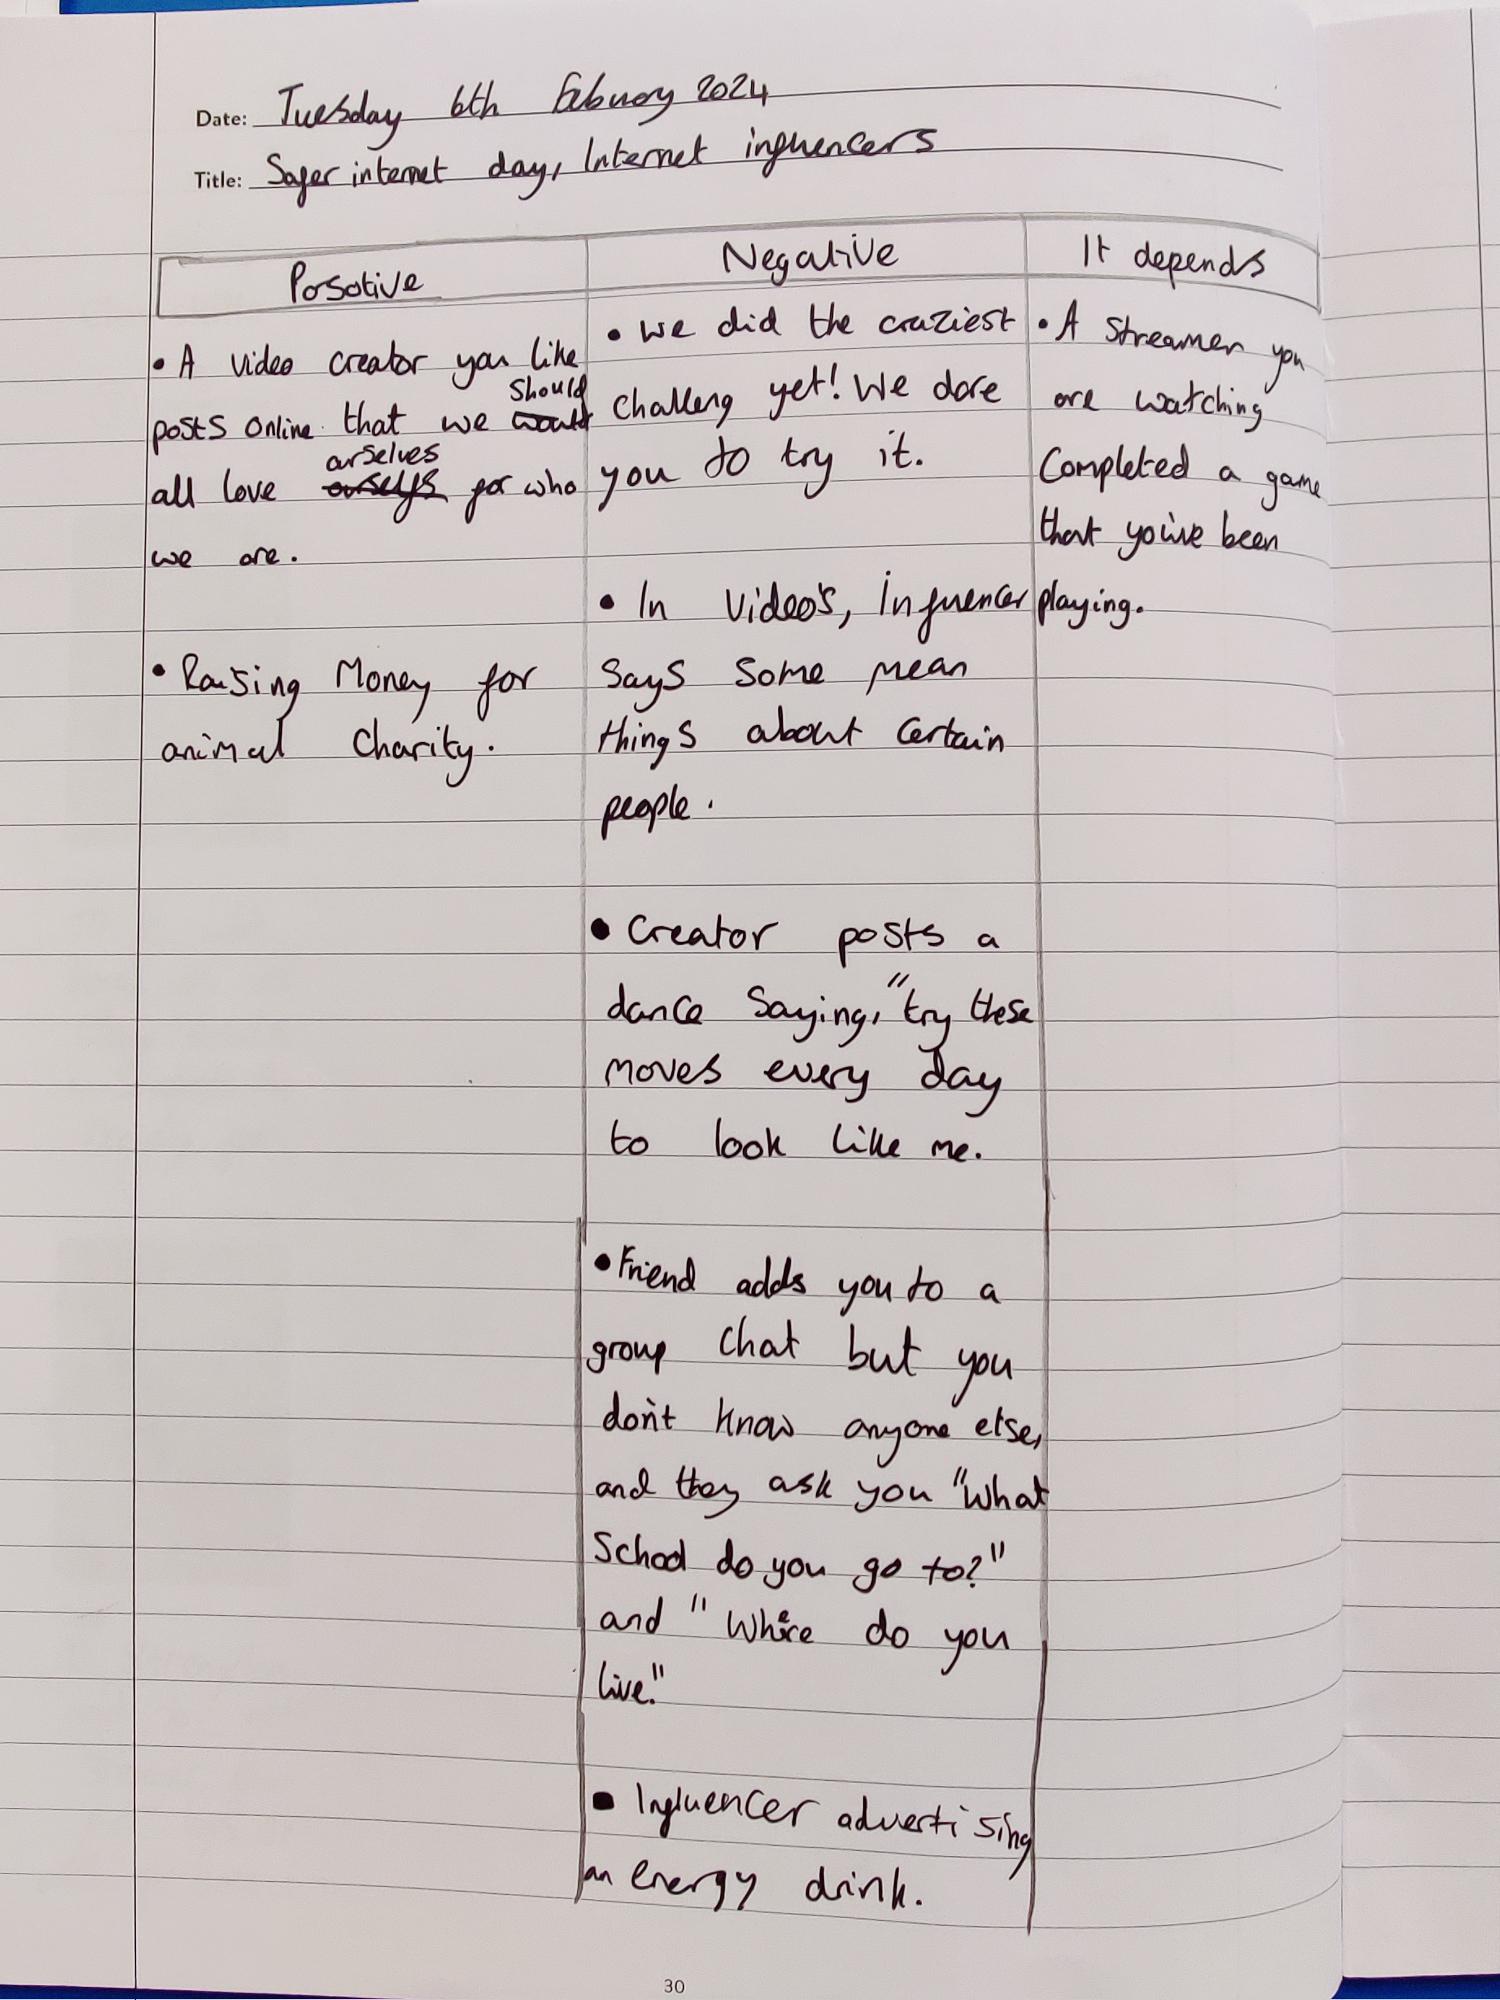 Date: Tuesday 6th Febuary 2024
Title: Safer internet day, Internet influencers
Posotive
• A video creator you like
should
posts online that we would
ourselves
all love ourselfs for who
we are.
• Raising Money for
animal charity.
Negative
• We did the craziest
challeng yet! We dare
you to try it.
• In video's, influencer
says some mean
things about certain
people.
• Creator posts a
dance saying, "try these
moves every day
to look like me.
• Friend adds you to a
group chat but you
don't know anyone else,
and they ask you "What
school do you go to?"
and "Where do you
live."
• Influencer advertising
an energy drink.
It depends
• A streamer you
are watching
completed a game
that you've been
playing.
30